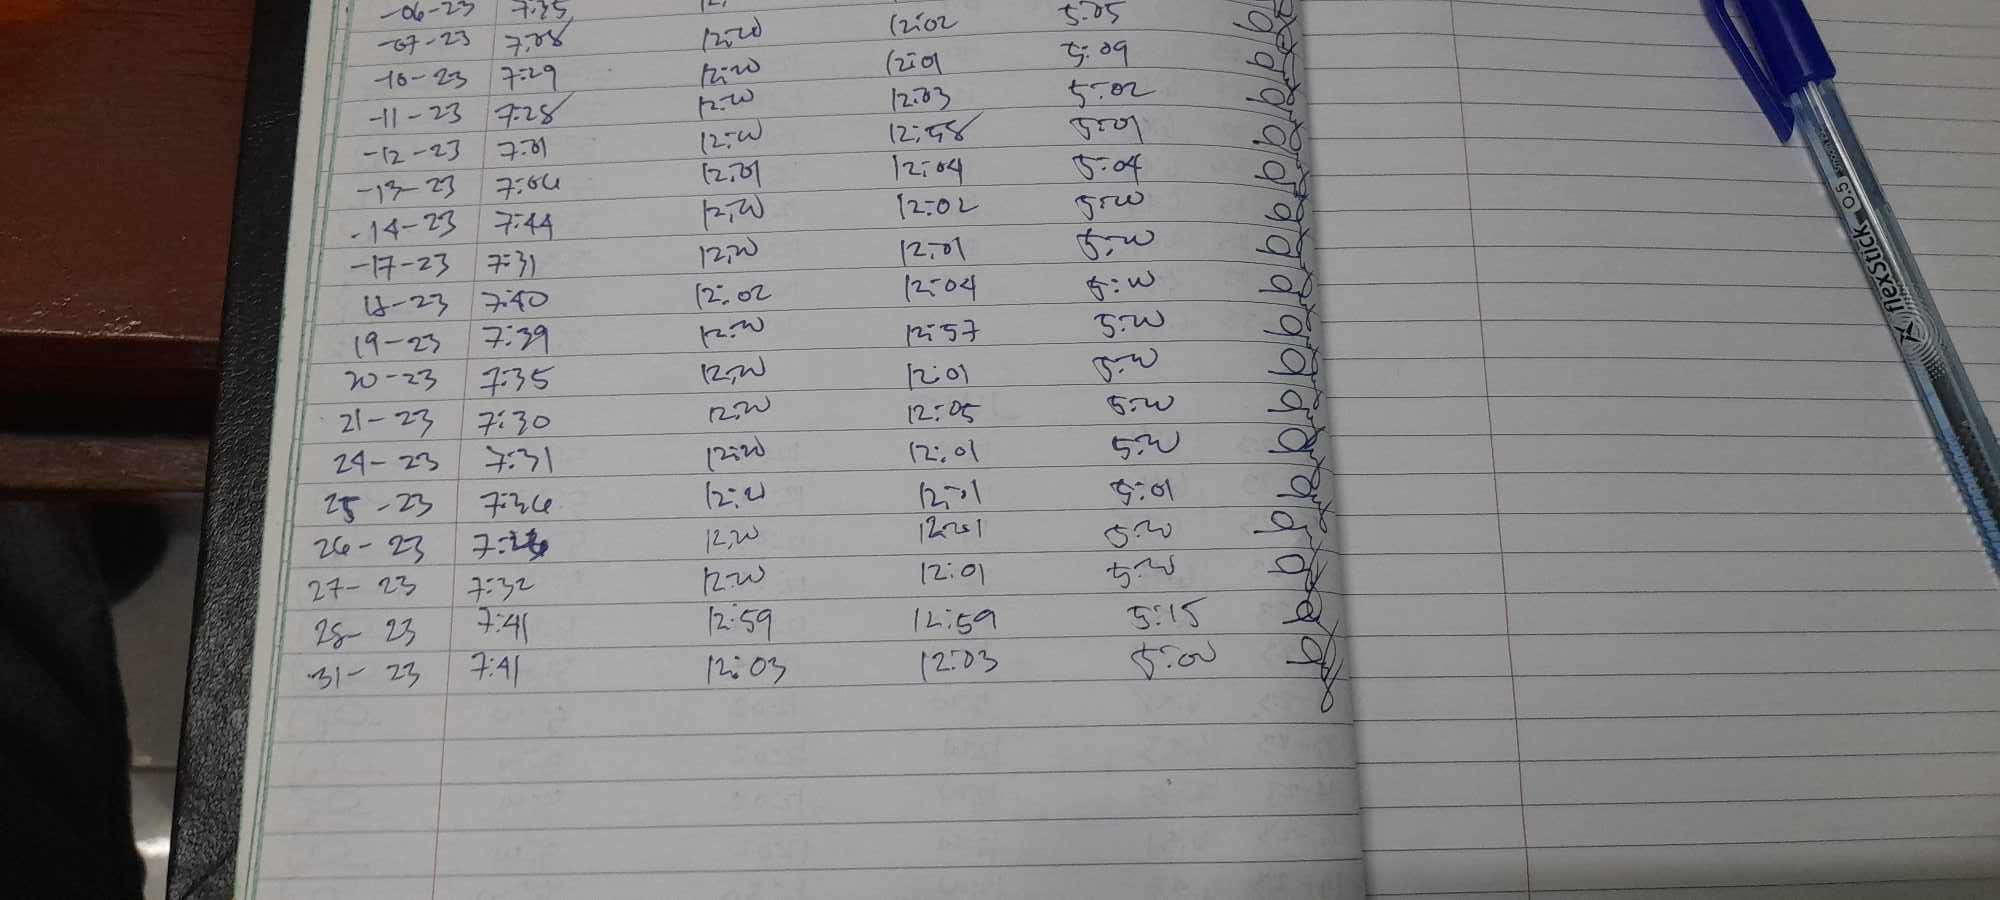 -06-23 7:35 5:05
-07-23 7:08 12:00 12:02
-10-23 7:29 12:00 12:01 5:09
-11-23 7:28 12:00 12:03 5:02
-12-23 7:01 12:00 12:58 5:01
-13-23 7:06 12:01 12:04 5:04
-14-23 7:44 12:00 12:02 5:00
-17-23 7:31 12:00 12:01 5:00
18-23 7:40 12:02 12:04 5:00
19-23 7:39 12:00 12:57 5:00
20-23 7:35 12:00 12:01 5:00
21-23 7:30 12:00 12:05 5:00
24-23 7:31 12:00 12:01 5:00
25-23 7:36 12:00 12:01 5:01
26-23 12:00 12:01 5:00
27-23 7:32 12:00 12:01 5:00
28-23 7:41 12:59 12:59 5:15
31-23 7:41 12:03 12:03 5:00
flexstick 0.5